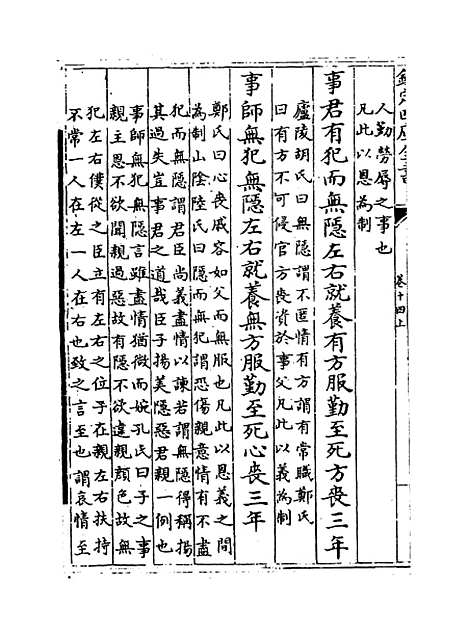 欽定四庫全書
卷十四上
人勤勞辱之事也
凡此以恩為制
事君有犯而無隱左右就養有方服勤至死方喪三年
廬陵胡氏曰無隱謂不匿情有方謂有常職鄭氏
曰有方不可侵官方喪資於事父凡此以義為制
事師無犯無隱左右就養無方服勤至死心喪三年
鄭氏曰心喪戚容如父而無服也凡此以恩義之間
為制山陰陸氏曰隱而無犯謂恐傷親意情有不盡
犯而無隱謂君臣尚義盡情以諫若謂無隱得稱揚
其過失豈事君之道哉臣子揚美隱惡君親一例也
事師無犯無隱言雖盡情猶微而婉孔氏曰子之事
親主恩不欲聞親過惡故有隱不欲違親顔色故無
犯左右僕從之臣立有左右之位子在親左右扶持
不常一人在左一人在右也致之言至也謂哀情至